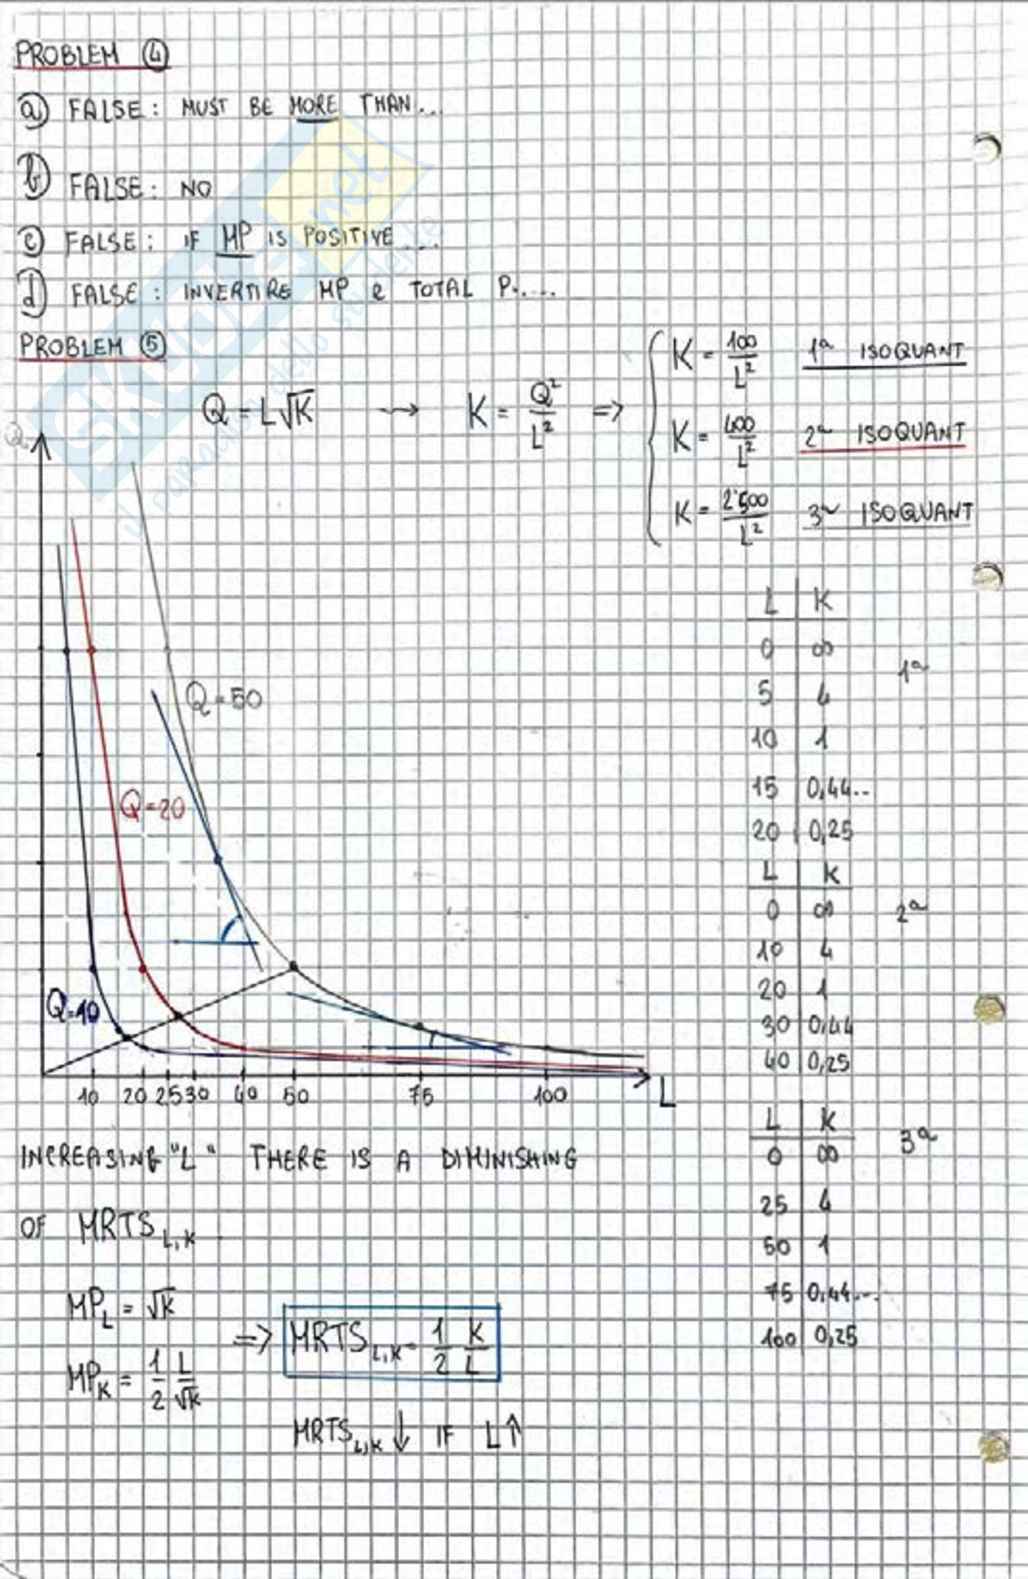 PROBLEM ④
a) FALSE: MUST BE MORE THAN...
b) FALSE: NO
c) FALSE: IF MP IS POSITIVE ...
d) FALSE: INVERTIRE MP e TOTAL P.....
PROBLEM ⑤
Q = L√K → K = Q²/L² ⇒
K = 100/L² 1ª ISOQUANT
K = 400/L² 2ª ISOQUANT
K = 2'500/L² 3ª ISOQUANT
L K
0 ∞
5 4
10 1
15 0,44..
20 0,25
1ª
L K
0 ∞
10 4
20 1
30 0,44
40 0,25
2ª
L K
0 ∞
25 4
50 1
75 0,44...
100 0,25
3ª
Q=50
Q=20
Q=10
10 20 25 30 40 50 75 100 L
INCREASING "L" THERE IS A DIMINISHING
OF MRTS L,K
MP_L = √K
MP_K = 1/2 L/√K
⇒ MRTS L,K = 1/2 K/L
MRTS L,K ↓ IF L↑
SKUOLA.net